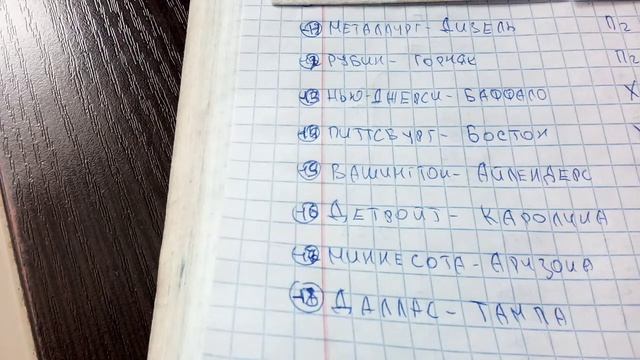 11 МЕТАЛЛУРГ- ДИЗЕЛЬ П2
12 РУБИН- ГОРНЯК П2
13 НЬЮ-ДЖЕРСИ- БАФФАЛО X
14 ПИТТСБУРГ- БОСТОН
15 ВАШИНГТОН- АЙЛЕНДЕРС
16 ДЕТРОЙТ- КАРОЛИНА
17 МИННЕСОТА- АРИЗОНА
18 ДАЛЛАС- ТАМПА